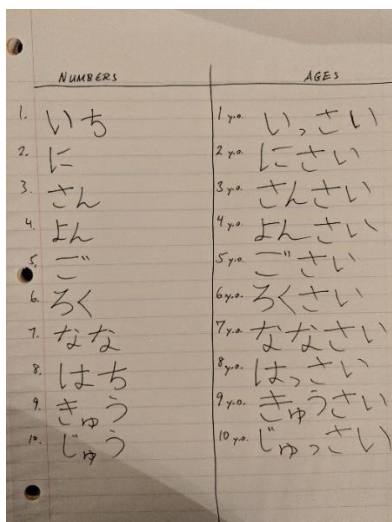 NUMBERS AGES
1. いち 1 y.o. いっさい
2. に 2 y.o. にさい
3. さん 3 y.o. さんさい
4. よん 4 y.o. よんさい
5. ご 5 y.o. ごさい
6. ろく 6 y.o. ろくさい
7. なな 7 y.o. ななさい
8. はち 8 y.o. はっさい
9. きゅう 9 y.o. きゅうさい
10. じゅう 10 y.o. じゅっさい